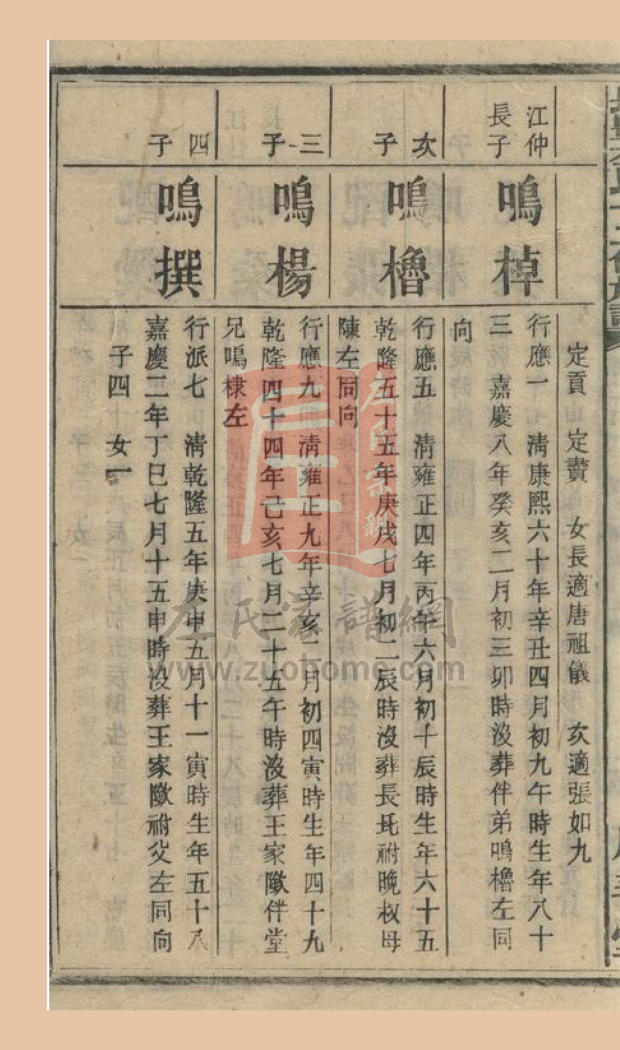 定貢 定賣 女長適唐祖儀 次適張如九
江仲
長子
鳴棹
行應一 清康熙六十年辛丑四月初九午時生年八十
三 嘉慶八年癸亥二月初三卯時沒葬伴弟鳴櫓左同
向
次
子
鳴櫓
行應五 清雍正四年丙午六月初千辰時生年六十五
乾隆五十五年庚戌七月初二辰時沒葬長圫祔晚叔母
陳左同向
三
子
鳴楊
行應九 清雍正九年辛亥二月初四寅時生年四十九
乾隆四十四年己亥七月二十五午時沒葬王家隞伴堂
兄鳴棣左
四
子
鳴撰
行派七 清乾隆五年庚申五月十一寅時生年五十八
嘉慶二年丁巳七月十五申時沒葬王家隞祔父左同向
子四 女一
左氏家譜網
www.zuohome.com